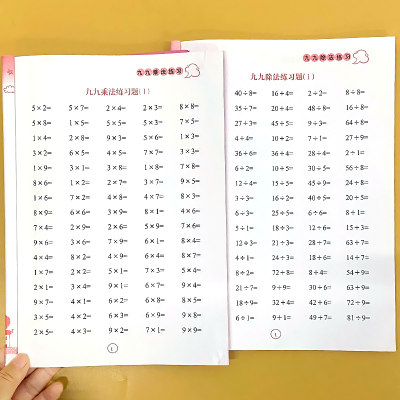 九九乘法练习
九九乘法练习题(1)
5×2= 5×7= 2×4= 2×3= 8×8=
5×8= 1×5= 5×5= 5×3= 7×5=
1×4= 2×8= 9×3= 3×4= 1×3=
3×2= 6×5= 4×5= 7×7= 3×3=
1×9= 3×1= 3×8= 1×8= 7×8=
8×6= 1×2= 7×2= 3×7= 9×5=
1×6= 2×7= 3×6= 4×6= 2×2=
8×9= 6×6= 3×9= 3×5= 4×1=
7×4= 2×9= 2×6= 5×9= 9×8=
9×6= 3×2= 9×1= 5×6= 8×4=
4×4= 8×2= 4×9= 5×4= 7×3=
1×7= 2×1= 5×1= 7×3= 5×4=
2×1= 4×2= 9×2= 6×4= 8×5=
9×7= 4×1= 6×2= 6×8= 8×1=
3×1= 7×6= 6×3= 6×9= 5×5=
2×5= 4×3= 9×2= 7×1= 9×9=
1
九九除法练习
九九除法练习题(1)
40÷8= 16÷4= 2÷2= 8÷8=
35÷7= 20÷4= 48÷8= 16÷8=
27÷3= 45÷5= 9÷3= 64÷8=
4÷4= 10÷2= 7÷1= 27÷9=
36÷6= 36÷4= 28÷4= 2÷1=
36÷9= 6÷2= 30÷5= 56÷8=
12÷4= 15÷5= 45÷9= 24÷8=
3÷3= 16÷2= 40÷5= 20÷5=
6÷3= 25÷5= 6÷6= 8÷1=
5÷1= 15÷3= 24÷6= 14÷7=
12÷3= 21÷3= 28÷7= 63÷7=
4÷1= 24÷3= 18÷6= 14÷2=
12÷6= 72÷8= 8÷4= 54÷9=
21÷7= 9÷9= 42÷6= 63÷9=
18÷9= 32÷4= 42÷7= 72÷9=
6÷1= 9÷1= 49÷7= 81÷9=
1